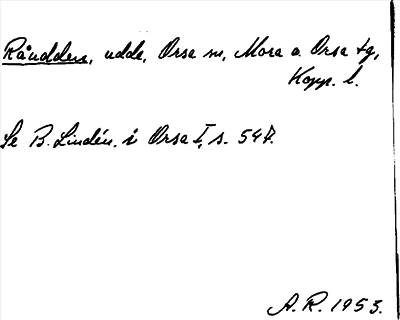 Råudden, udde, Orsa sn, Mora o Orsa tg,
Kopp. l.
Se B. Lindén i Orsa I, s. 547.
A. R. 1953.